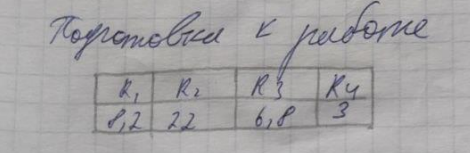 Подготовка к работе
R₁ R₂ R3 R4
8,2 22 6,8 3